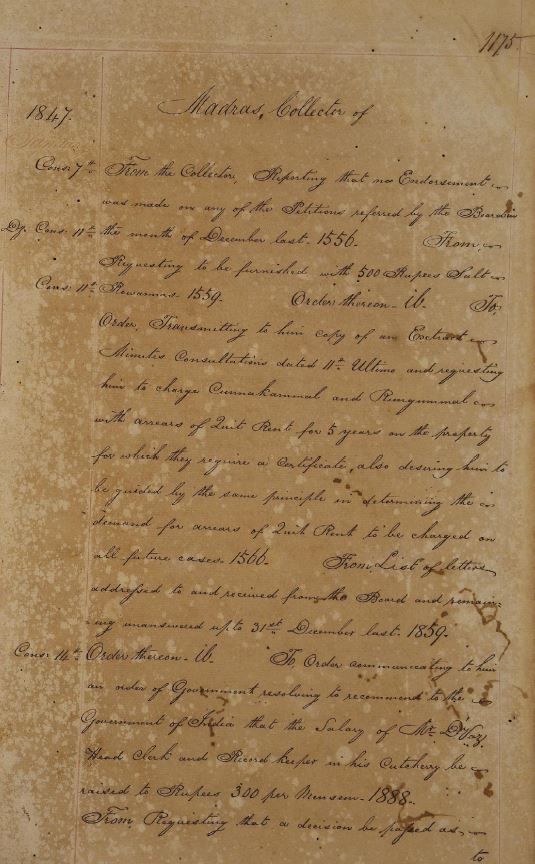 1175.
1847. Madras, Collector of
Cons: 7th From the Collector, Reporting that no Endorsement
was made on any of the Petitions referred by the Board in
Dy. Cons. 11th the month of December last. 1556. From,
Requesting to be furnished with 500 Rupees Salt
Cons: 11th Rowannas. 1559. Order thereon. ib. To,
Order, Transmitting to him copy of an Exctract
Minutes Consultations dated 11th Ultimo and requesting
him to charge Cunnakammal and Rungummal
with arrears of Quit Rent for 5 years on the property
for which they require a Certificate, also desering him to
be guided by the same principle in determining the
demand for arrears of Quit Rent to be charged on
all future cases. 1566. From, List of letters
addressed to and received from the Board and remain-
ing unanswered up to 31st December last. 1859.
Cons: 14th Order thereon. ib. To Order communicating to him
an order of Government resolving to recommend to the
Government of India that the Salary of Mr. D'Vaz,
Head Clerk and Record keeper in his Cutcherry be
raised to Rupees 300 per Mensem. 1888.
From Requesting that a decision be passed as,
to